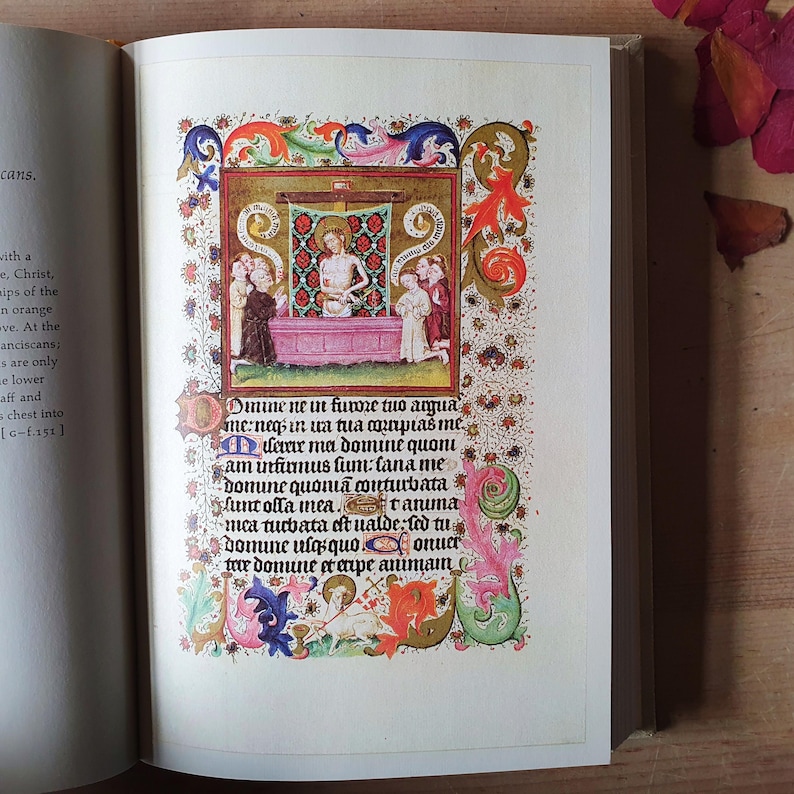 cans.
with a
e, Christ,
hips of the
n orange
ove. At the
anciscans;
s are only
e lower
aff and
s chest into
[G–f.151]
Domine ne in furore tuo argua
me: neq; in ira tua corripias me
Miserere mei domine quoni
am infirmus sum: sana me
domine quoniā conturbata
sunt ossa mea. Et anima
mea turbata est valde: sed tu
domine usq; quo Conuer
tere domine et eripe animam